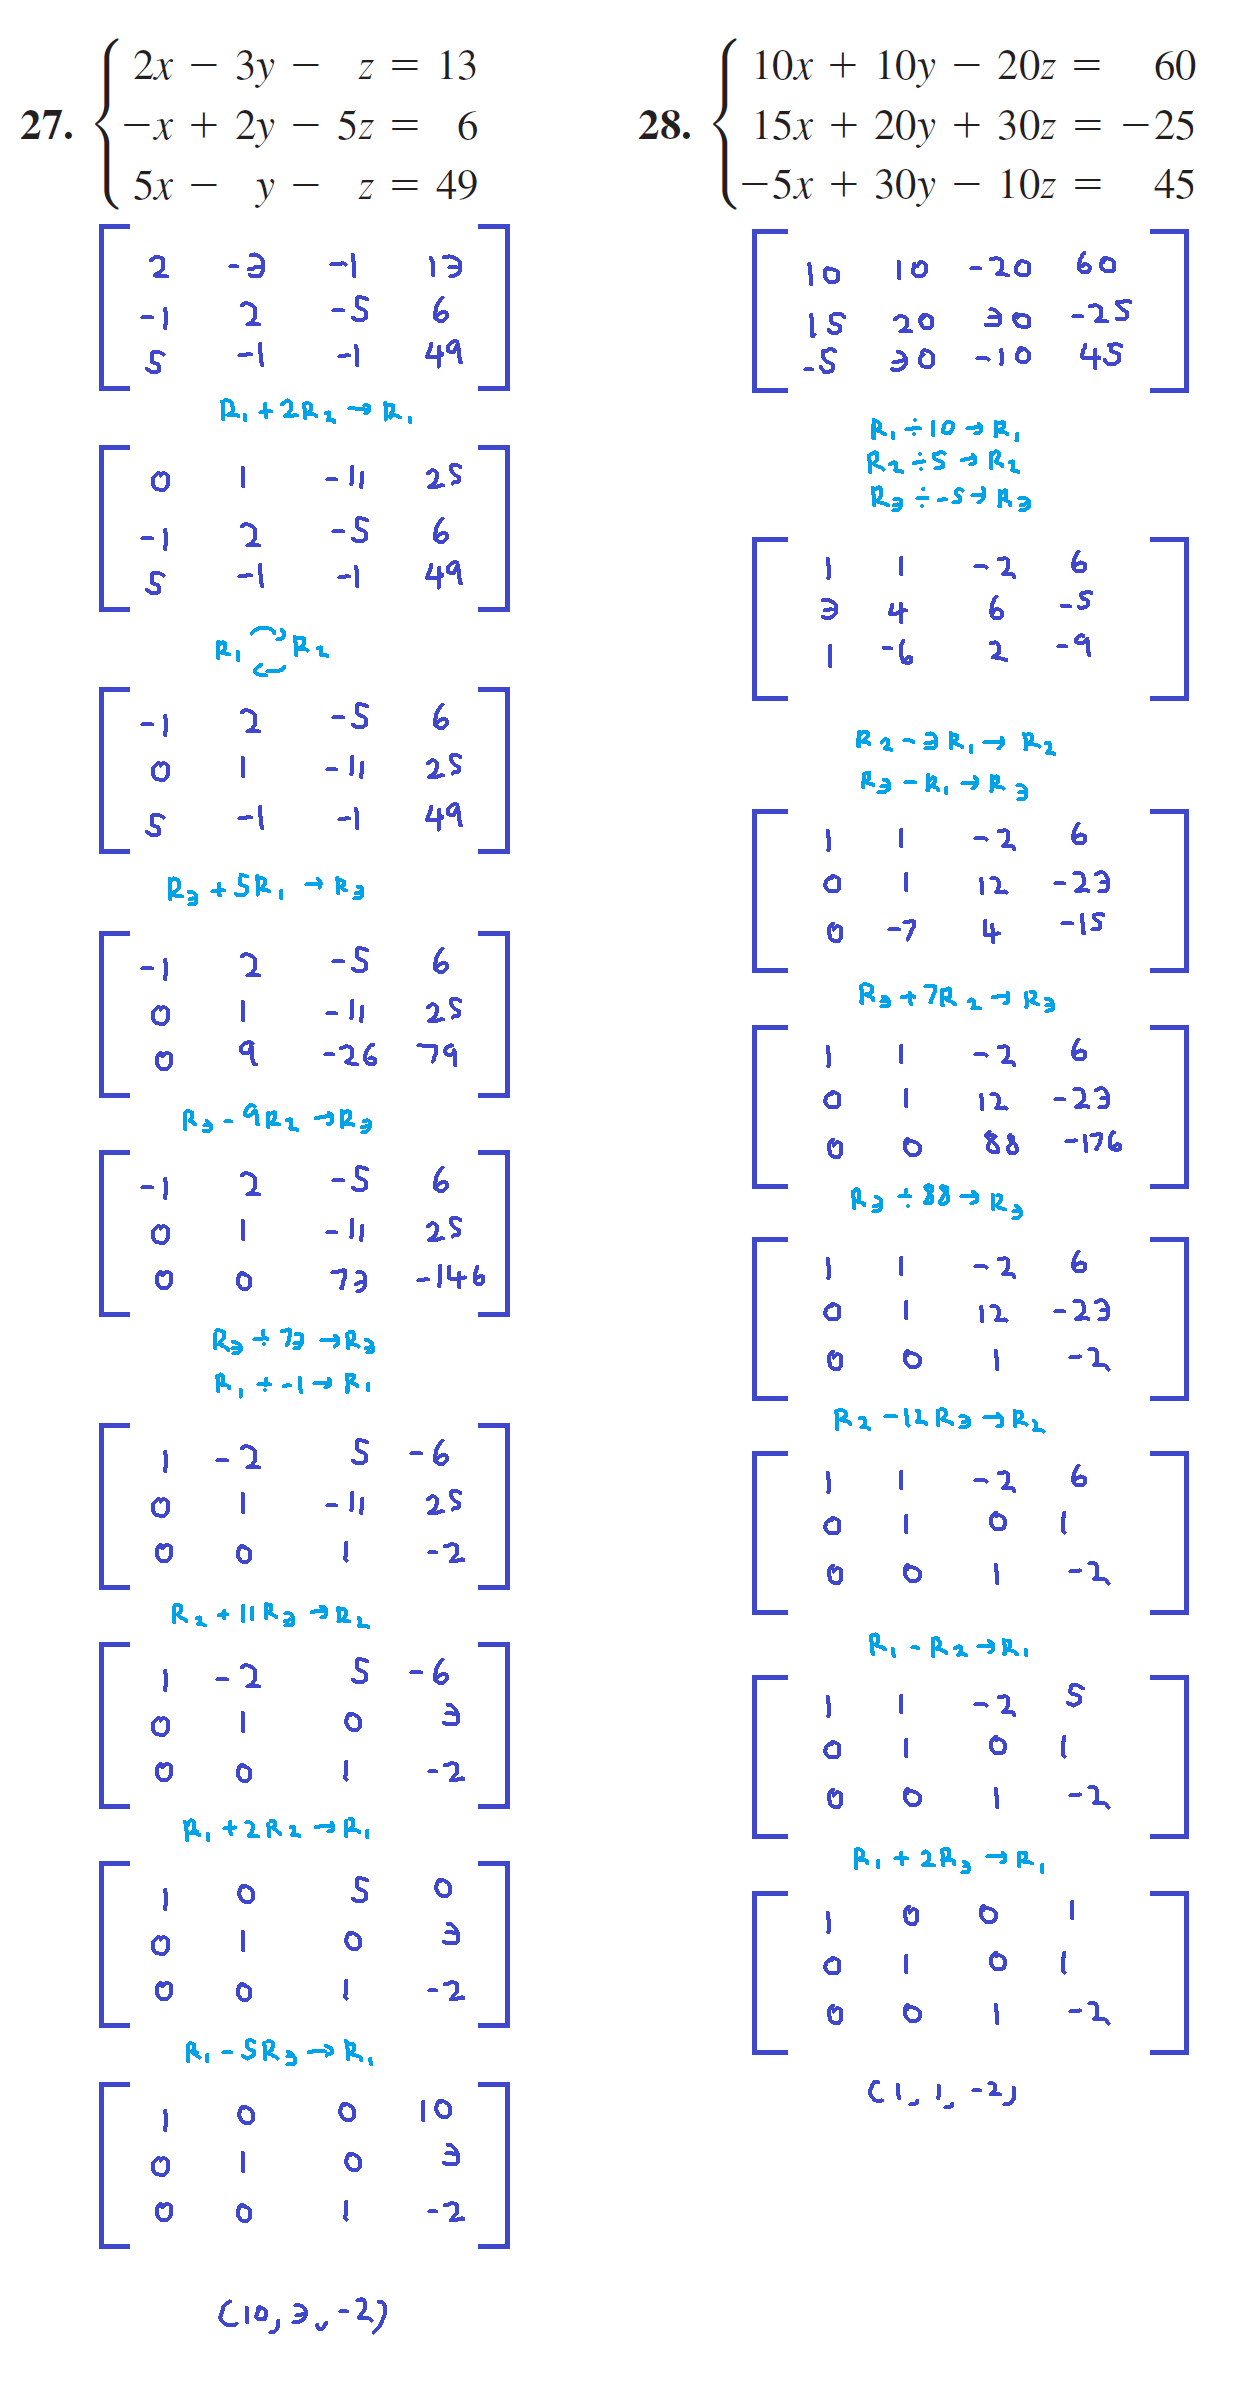 27.
2x − 3y − z = 13
−x + 2y − 5z = 6
5x − y − z = 49
2 -3 -1 13
-1 2 -5 6
5 -1 -1 49
R₁ + 2R₂ → R₁
0 1 -11 25
-1 2 -5 6
5 -1 -1 49
R₁ R₂
-1 2 -5 6
0 1 -11 25
5 -1 -1 49
R₃ + 5R₁ → R₃
-1 2 -5 6
0 1 -11 25
0 9 -26 79
R₃ - 9R₂ → R₃
-1 2 -5 6
0 1 -11 25
0 0 73 -146
R₃ ÷ 73 → R₃
R₁ ÷ -1 → R₁
1 -2 5 -6
0 1 -11 25
0 0 1 -2
R₂ + 11R₃ → R₂
1 -2 5 -6
0 1 0 3
0 0 1 -2
R₁ + 2R₂ → R₁
1 0 5 0
0 1 0 3
0 0 1 -2
R₁ - 5R₃ → R₁
1 0 0 10
0 1 0 3
0 0 1 -2
(10, 3, -2)
28.
10x + 10y − 20z = 60
15x + 20y + 30z = −25
−5x + 30y − 10z = 45
10 10 -20 60
15 20 30 -25
-5 30 -10 45
R₁ ÷ 10 → R₁
R₂ ÷ 5 → R₂
R₃ ÷ -5 → R₃
1 1 -2 6
3 4 6 -5
1 -6 2 -9
R₂ - 3R₁ → R₂
R₃ - R₁ → R₃
1 1 -2 6
0 1 12 -23
0 -7 4 -15
R₃ + 7R₂ → R₃
1 1 -2 6
0 1 12 -23
0 0 88 -176
R₃ ÷ 88 → R₃
1 1 -2 6
0 1 12 -23
0 0 1 -2
R₂ - 12R₃ → R₂
1 1 -2 6
0 1 0 1
0 0 1 -2
R₁ - R₂ → R₁
1 1 -2 5
0 1 0 1
0 0 1 -2
R₁ + 2R₃ → R₁
1 0 0 1
0 1 0 1
0 0 1 -2
(1, 1, -2)